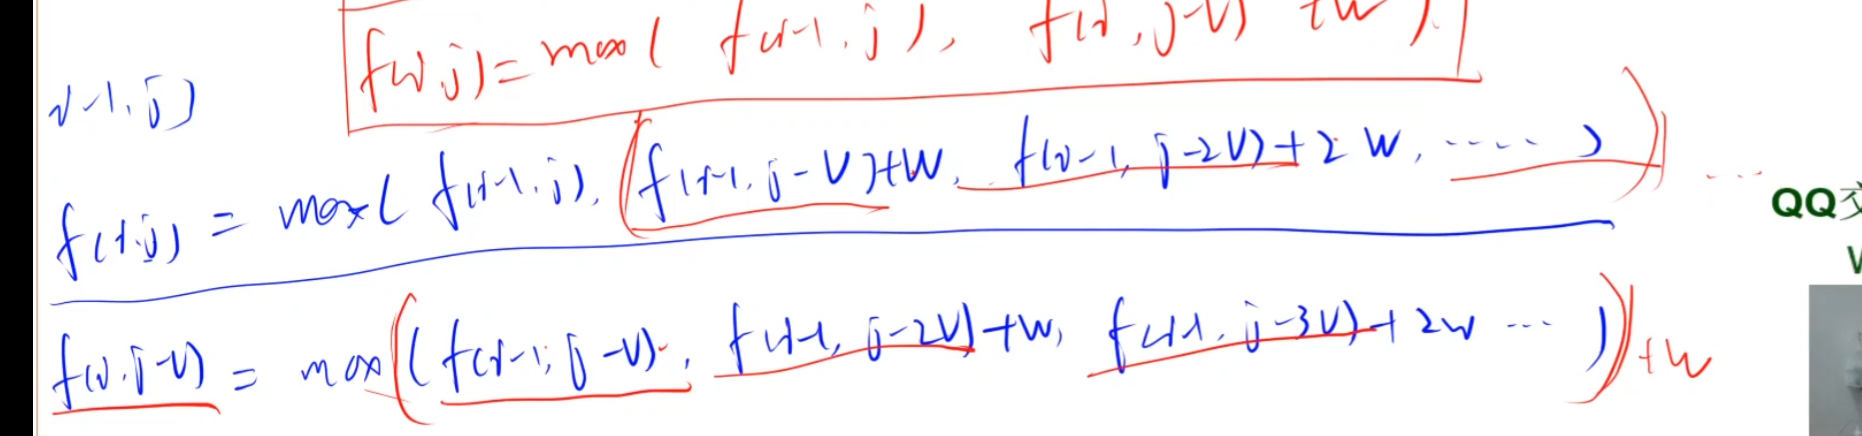 f(i,j)=max( f(i-1,j), f(i,j-v)+w ).
i-1,j)
f(i,j) = max( f(i-1,j), (f(i-1,j-v)+w, f(i-1,j-2v)+2w, ..... ) )
.....
QQ交
f(i,j-v) = max(( f(i-1,j-v), f(i-1,j-2v)+w, f(i-1,j-3v)+2w ... ))+w